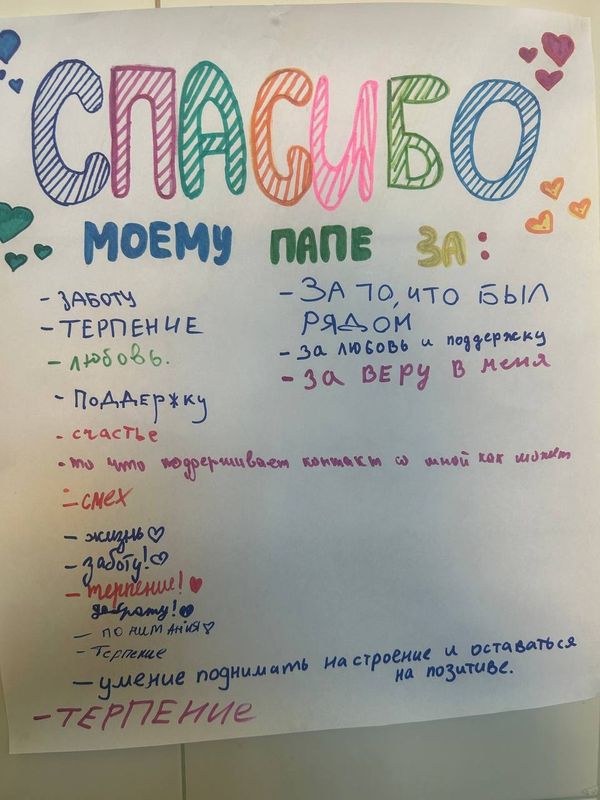 СПАСИБО
МОЕМУ ПАПЕ ЗА:
- ЗАБОТУ
- ТЕРПЕНИЕ
- ЛЮБОВЬ.
- ПОДДЕРЖКУ
- счастье
- то что поддерживает контакт со мной как может
- смех
- жизнь
- заботу!
- терпение!
доброту!
- ПОНИМАНИЯ
- Терпение
- умение поднимать настроение и оставаться
на позитиве.
- ТЕРПЕНИЕ
- ЗА ТО, ЧТО БЫЛ
РЯДОМ
- ЗА ЛЮБОВЬ и поддержку
- За ВЕРУ В меня